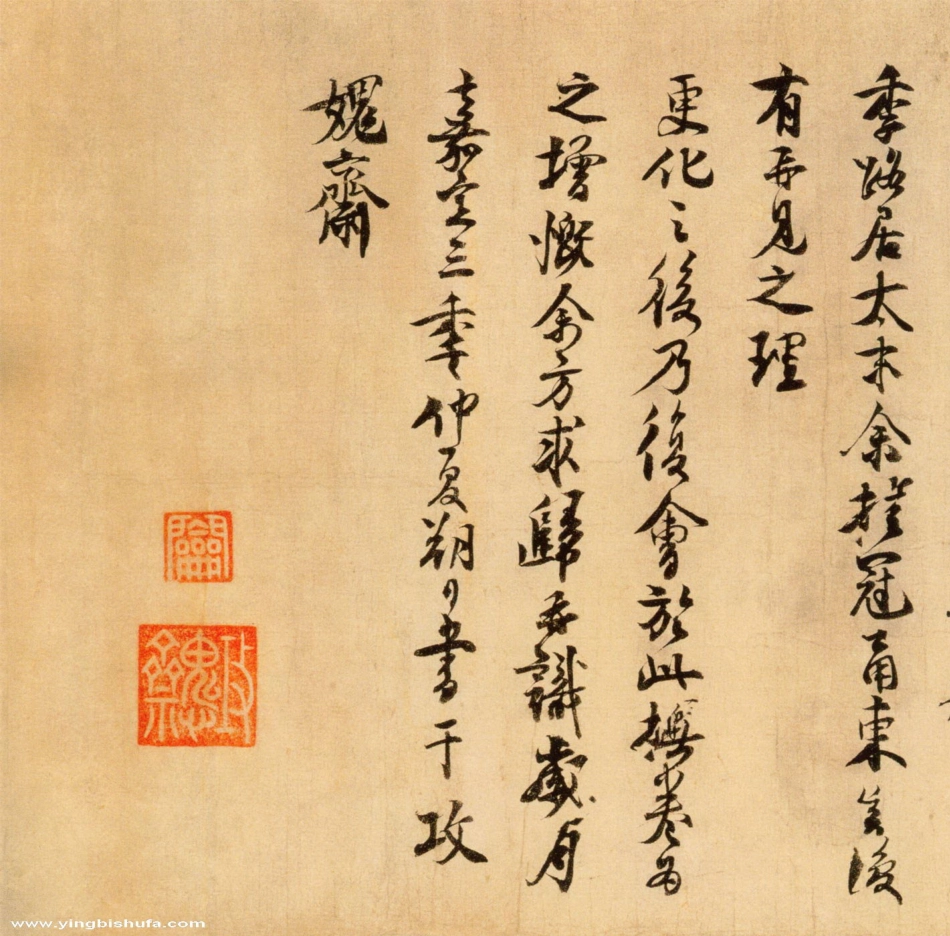 季路居太末余挂冠甬東豈復
有再見之理
更化之後乃復會於此撫卷為
之增慨余方求歸再識歲月
嘉定三秊仲夏朔日書于攻
媿齋
攻媿齋
www.yingbishufa.com